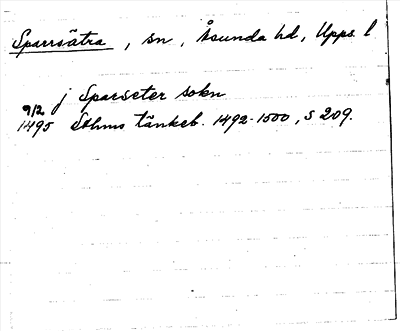 Sparrsätra, sn, Åsunda hd, Upps. l
j Sparseter sokn
9/2 1495 Sthms tänkeb. 1492-1500, s 209.